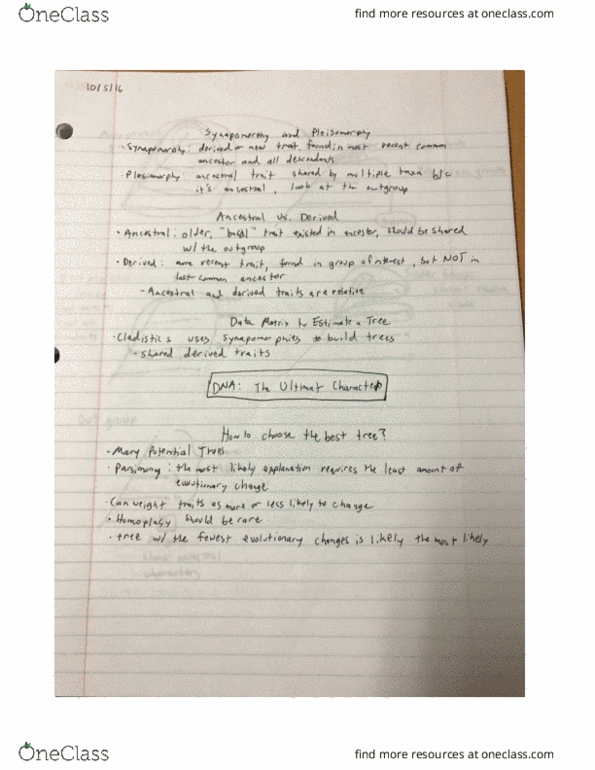 OneClass
find more resources at oneclass.com
10/5/16
Synapomorphy and Pleisomorphy
• Synapomorphy: derived or new trait, found in most recent common
ancestor and all descendents
• Plesiomorphy: ancestral trait shared by multiple taxa b/c
it's ancestral, look at the outgroup
Ancestral vs. Derived
• Ancestral: older, "basal" trait existed in ancestor, should be shared
w/ the outgroup
• Derived: more recent trait, found in group of interest, but NOT in
last common ancestor
- Ancestral and derived traits are relative
Data Matrix to Estimate a Tree
• Cladistics uses synapomorphies to build trees
- shared derived traits
DNA: The Ultimat Character
How to choose the best tree?
• Many Potential Trees
• Parsimony: the most likely explanation requires the least amount of
evolutionary change
• Can weight traits as more or less likely to change
• Homoplasy should be rare
• tree w/ the fewest evolutionary changes is likely the most likely
OneClass
find more resources at oneclass.com